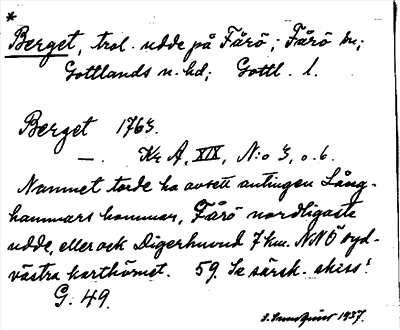 *
Berget, trol. udde på Fårö; Fårö sn;
Gottlands n. hd; Gottl. l.
Berget 1763.
—. Kr A, XIX, N:o 3, o. b.
Namnet torde ha avsett antingen Lång-
hammars hammar, Fårö nordligaste
udde, eller ock Digerhuvud 7 km. NNÖ syd-
västra karthörnet. 59. Se särsk. skiss!
G. 49.
1937.